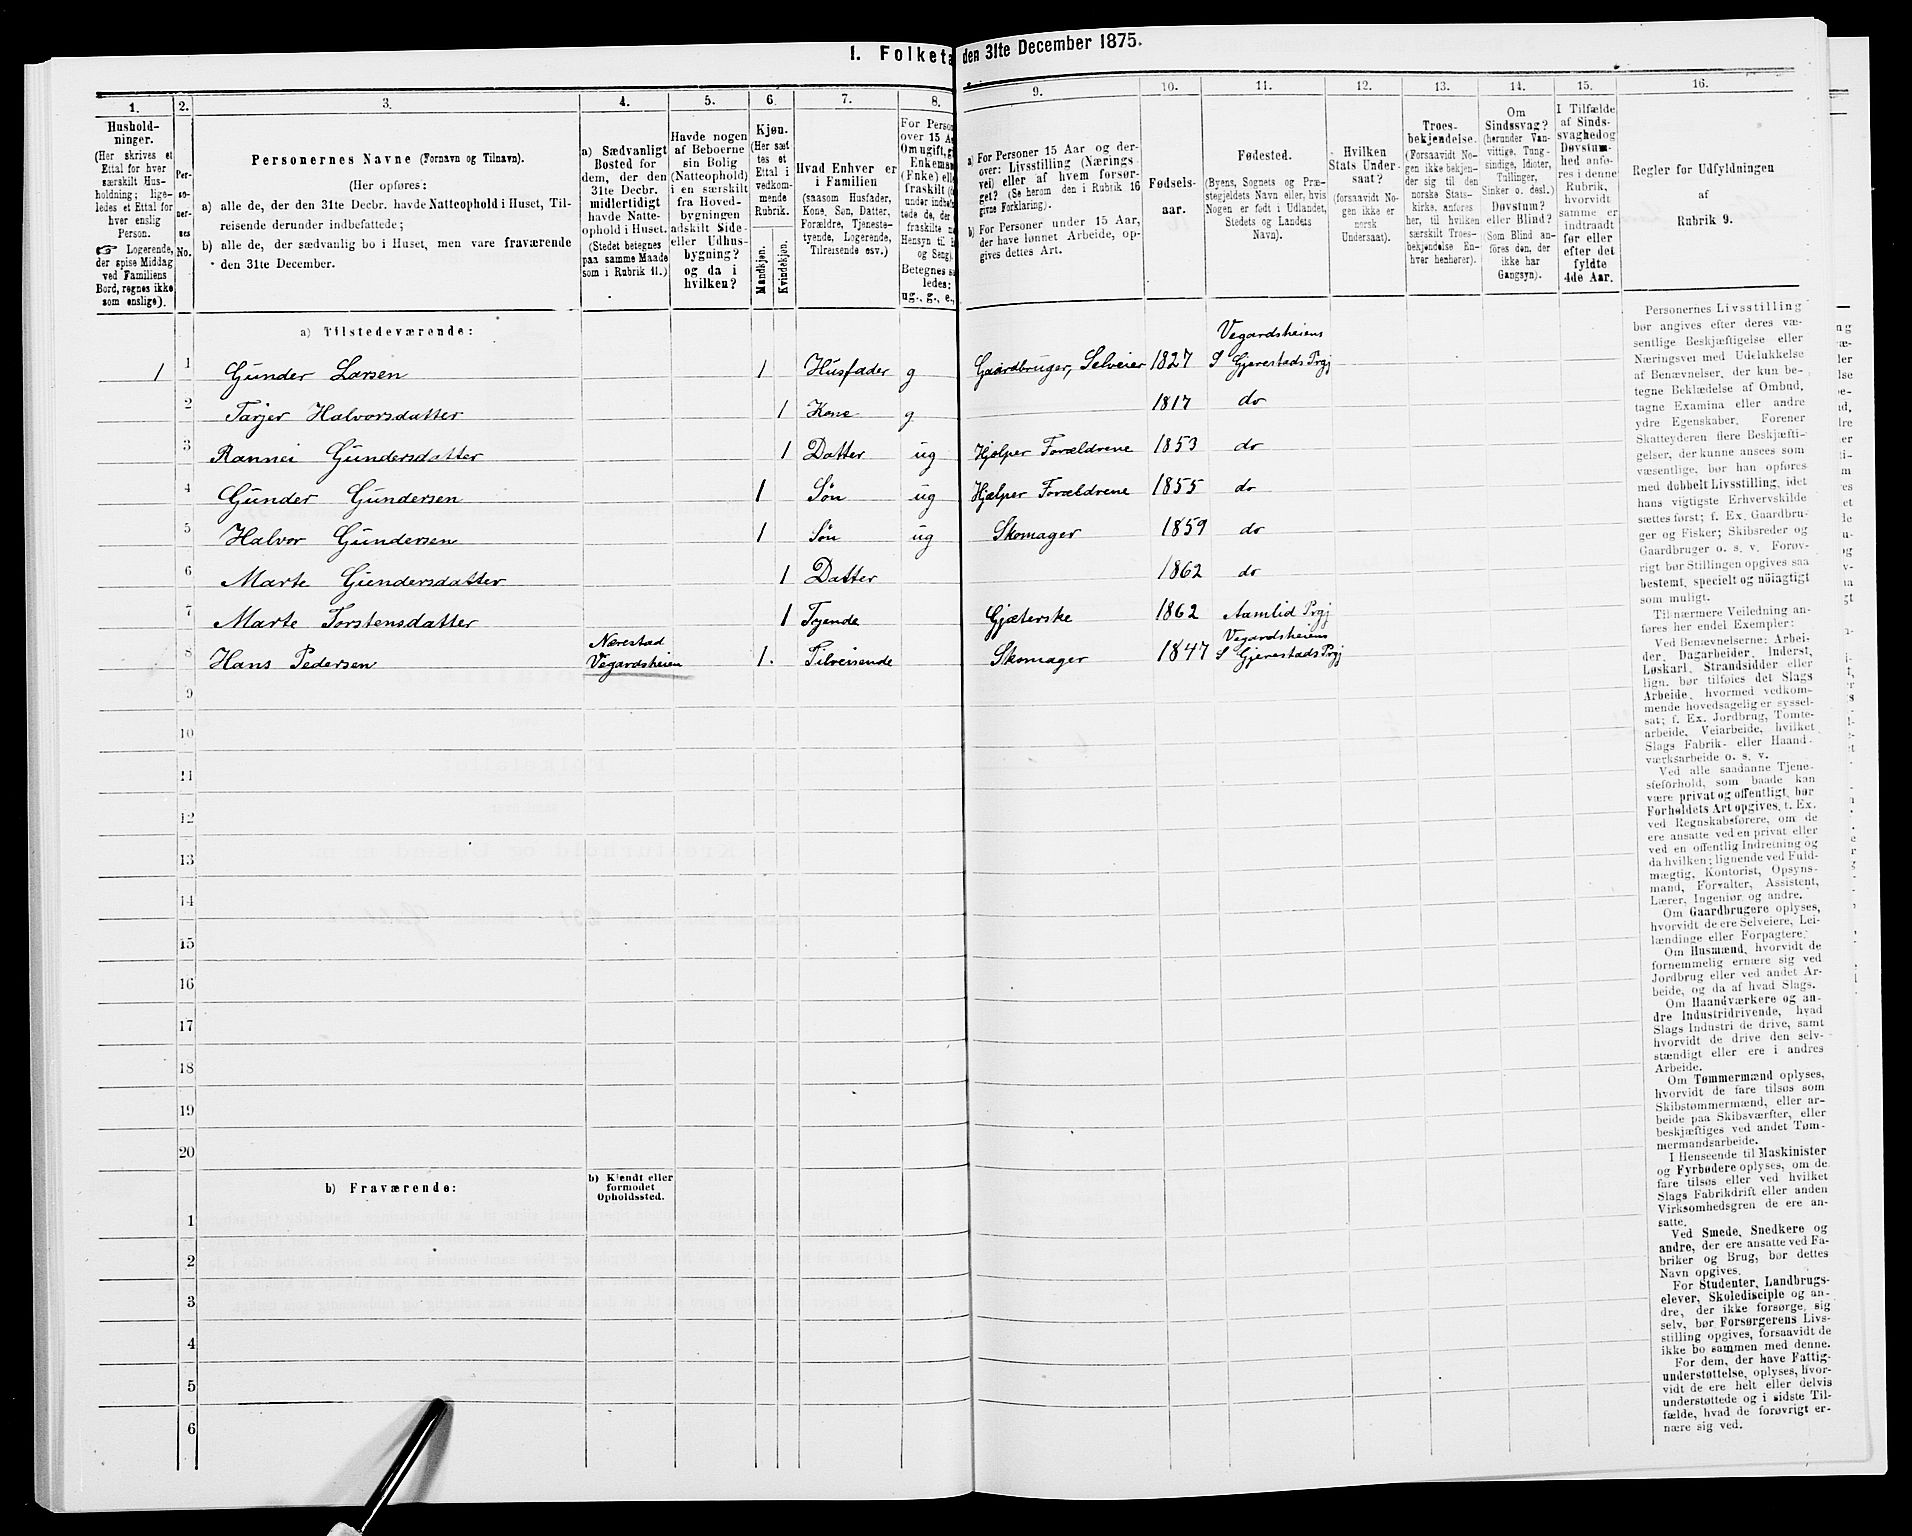 1. Folketæ den 31te December 1875.
1. 2. 3. 4. 5. 6. 7. 8. 9. 10. 11. 12. 13. 14. 15. 16.
Hushold-
ninger.
(Her skrives et
Ettal for hver
særskilt Hus-
holdning; lige-
ledes et Ettal for
hver enslig
Person.
☞ Logerende,
der spise Middag
ved Familiens
Bord, regnes ikke
som enslige).
Per-
so-
ner-
nes
No.
Personernes Navne (Fornavn og Tilnavn).
(Her opføres:
a) alle de, der den 31te Decbr. havde Natteophold i Huset, Til-
reisende derunder indbefattede;
b) alle de, der sædvanlig bo i Huset, men vare fraværende
den 31te December.
a) Sædvanligt
Bosted for
dem, der den
31te Decbr.
midlertidigt
havde Natte-
ophold i Huset.
(Stedet betegnes
paa samme Maade
som i Rubrik 11.)
Havde nogen
af Beboerne
sin Bolig
(Natteophold)
i en særskilt
fra Hoved-
bygningen
adskilt Side-
eller Udhus-
bygning?
og da i
hvilken?
Kjøn.
(Her sæt-
tes et
Ettal i
vedkom-
mende
Rubrik.
Mandkjøn.
Kvindekjøn.
Hvad Enhver er
i Familien
(saasom Husfader,
Kone, Søn, Datter,
Forældre, Tjeneste-
tyende, Logerende,
Tilreisende osv.)
For Person
over 15 A
Om ugift, gi
Enkeman
(Enke) ell
fraskilt (
under indbe
tede de, de
fraskilte
Hensyn til
og Seng).
Betegnes s
ledes:
ug., g., e.,
a) For Personer 15 Aar og der-
over: Livsstilling (Nærings-
vei) eller af hvem forsør-
get? (Se herom den i Rubrik 16
givne Forklaring).
b) For Personer under 15 Aar,
der have lønnet Arbeide, op-
gives dettes Art.
Fødsels-
aar.
Fødested.
(Byens, Sognets og Præ-
stegjeldets Navn eller, hvis
Nogen er født i Udlandet,
Stedets og Landets
Navn).
Hvilken
Stats Under-
saat?
(forsaavidt No-
gen ikke er
norsk
Undersaat).
Troes-
bekjendelse.
(Forsaavidt No-
gen ikke bekjen-
der sig til den
norske Stats-
kirke, anføres
her, til hvilken
særskilt Troes-
bekjendelse En-
hver henhører).
Om
Sindssvag?
(herunder Van-
vittige, Tung-
sindige, Idioter,
Tullinger,
Sinker o. desl.)
Døvstum?
eller Blind?
(Som Blind an-
føres den, der
ikke har
Gangsyn).
I Tilfælde
af Sinds-
svaghed og
Døvstum-
hed anfø-
res i denne
Rubrik,
hvorvidt
samme er
indtraadt
før eller
efter det
fyldte
4de Aar.
Regler for Udfyldningen
af
Rubrik 9.
a) Tilstedeværende:
1 1 Gunder Larsen 1 Husfader g Gaardbruger, Selveier 1827 Vegardsheiens S Gjerestads Prgj
2 Tarjer Halvorsdatter 1 Kone g 1817 do
3 Rannei Gundersdatter 1 Datter ug Hjælper Forældrene 1853 do
4 Gunder Gundersen 1 Søn ug Hjælper Forældrene 1855 do
5 Halvor Gundersen 1 Søn ug Skomager 1859 do
6 Marte Gundersdatter 1 Datter 1862 do
7 Marte Torstensdatter 1 Tyende Gjæterske 1862 Aamlid Prgj
8 Hans Pedersen Nærestad Vegardsheien 1. Tilreisende Skomager 1847 Vegardsheiens S Gjerestads Prgj
9
10
11
12
13
14
15
16
17
18
19
20
b) Fraværende:
b) Kjendt eller
formodet
Opholdssted.
1
2
3
4
5
6
Personernes Livsstilling
bør angives efter deres væ-
sentlige Beskjæftigelse eller
Næringsvei med Udelukkelse
af Benævnelser, der kun be-
tegne Beklædelse af Ombud,
tagne Examina eller andre
ydre Egenskaber. Forener
Skatteyderen flere Beskjæfti-
gelser, der kunne ansees som
væsentlige, bør han opføres
med dobbelt Livsstilling, idet
hans vigtigste Erhvervskilde
sættes først; f. Ex. Gaardbru-
ger og Fisker; Skibsreder og
Gaardbruger o. s. v. Forøv-
rigt bør Stillingen opgives saa
bestemt, specielt og nøiagtigt
som muligt.
Til nærmere Veiledning an-
føres her endel Exempler:
Ved Benævnelserne: Arbei-
der, Dagarbeider, Inderst,
Løskarl, Strandsidder eller
lign. bør tilføies det Slags
Arbeide, hvormed vedkom-
mende hovedsagelig er syssel-
sat; f. Ex. Jordbrug, Tomte-
arbeide, Veiarbeide, hvilket
Slags Fabrik- eller Haand-
værksarbeide o. s. v.
Ved alle saadanne Tjene-
steforhold, som baade kan
være privat og offentligt, bør
Forholdets Art opgives, t. Ex.
ved Regnskabsførere, om de
ere ansatte ved en privat eller
ved en offentlig Indretning og
da hvilken; lignende ved Fuld-
mægtig, Kontorist, Opsyns-
mand, Forvalter, Assistent,
Lærer, Ingeniør og andre.
Om Gaardbrugere oplyses,
hvorvidt de ere Selveiere, Lei-
lændinge eller Forpagtere.
Om Husmænd, hvorvidt de
fornemmelig ernære sig ved
Jordbrug eller ved andet Ar-
beide, og da af hvad Slags.
Om Haandværkere og an-
dre Industridrivende, hvad
Slags Industri de drive, samt
hvorvidt de drive den selv-
stændigt eller ere i andres
Arbeide.
Om Tømmermænd oplyses,
hvorvidt de fare tilsøs som
Skibstømmermænd, eller ar-
beide paa Skibsværfter, eller
beskjæftiges ved andet Tøm-
mermandsarbeide.
I Henseende til Maskinister
og Fyrbødere oplyses, om de
fare tilsøs eller ved hvilket
Slags Fabrikdrift eller anden
Virksomhedsgren de ere an-
satte.
Ved Smede, Snedkere og
andre, der ere ansatte ved Fa-
briker og Brug, bør dettes
Navn opgives.
For Studenter, Landbrugs-
elever, Skoledisciple og an-
dre, der ikke forsørge sig
selv, bør Forsørgerens Livs-
stilling opgives, forsaavidt de
ikke bo sammen med denne.
For dem, der have Fattig-
understøttelse, oplyses, hvor-
vidt de ere helt eller delvis
understøttede og i sidste Til-
fælde, hvad de forøvrigt er-
nære sig ved.